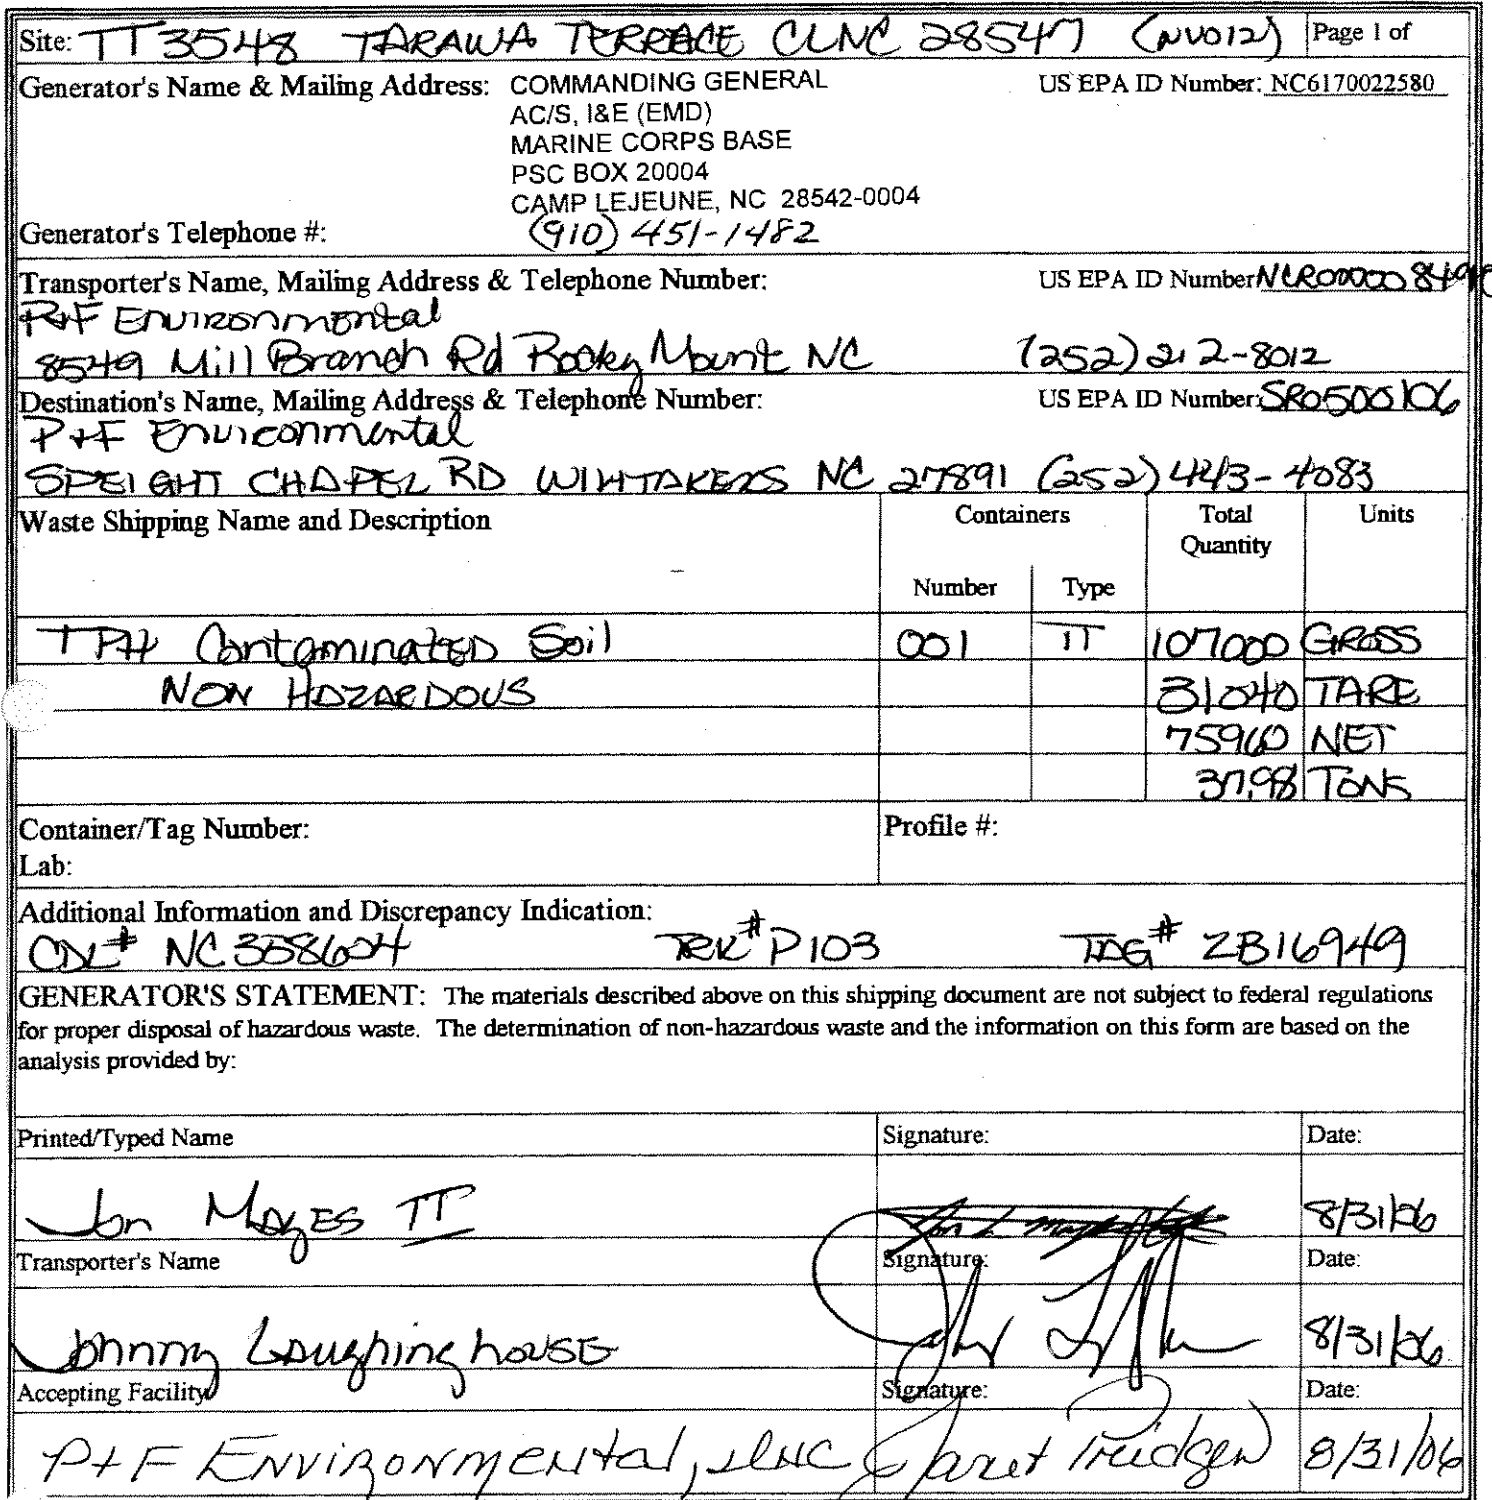 Site: TT3548 TARAWA TERRACE CLNC 28547 (NV012) Page 1 of
Generator's Name & Mailing Address: COMMANDING GENERAL US EPA ID Number: NC6170022580
AC/S, I&E (EMD)
MARINE CORPS BASE
PSC BOX 20004
CAMP LEJEUNE, NC 28542-0004
Generator's Telephone #: (910) 451-1482
Transporter's Name, Mailing Address & Telephone Number: US EPA ID Number
P+F Environmental
8549 Mill Branch Rd Rocky Mount NC (252) 212-8012
Destination's Name, Mailing Address & Telephone Number: US EPA ID Number: SR0500106
P+F Environmental
SPEIGHT CHAPEL RD WIHTAKERS NC 27891 (252) 443-4083
Waste Shipping Name and Description Containers Total Units
Quantity
Number Type
TPH Contaminated Soil 001 TT 107000 GROSS
NON HAZARDOUS 31040 TARE
75960 NET
37.98 TONS
Container/Tag Number: Profile #:
Lab:
Additional Information and Discrepancy Indication:
CDL# NC TRK# P103 TAG# ZB16949
GENERATOR'S STATEMENT: The materials described above on this shipping document are not subject to federal regulations
for proper disposal of hazardous waste. The determination of non-hazardous waste and the information on this form are based on the
analysis provided by:
Printed/Typed Name Signature: Date:
Jon Mayes II 8/31/06
Transporter's Name Signature: Date:
Johnny Laughinghouse 8/31/06
Accepting Facility Signature: Date:
P+F Environmental, Inc Janet Pridgen 8/31/06